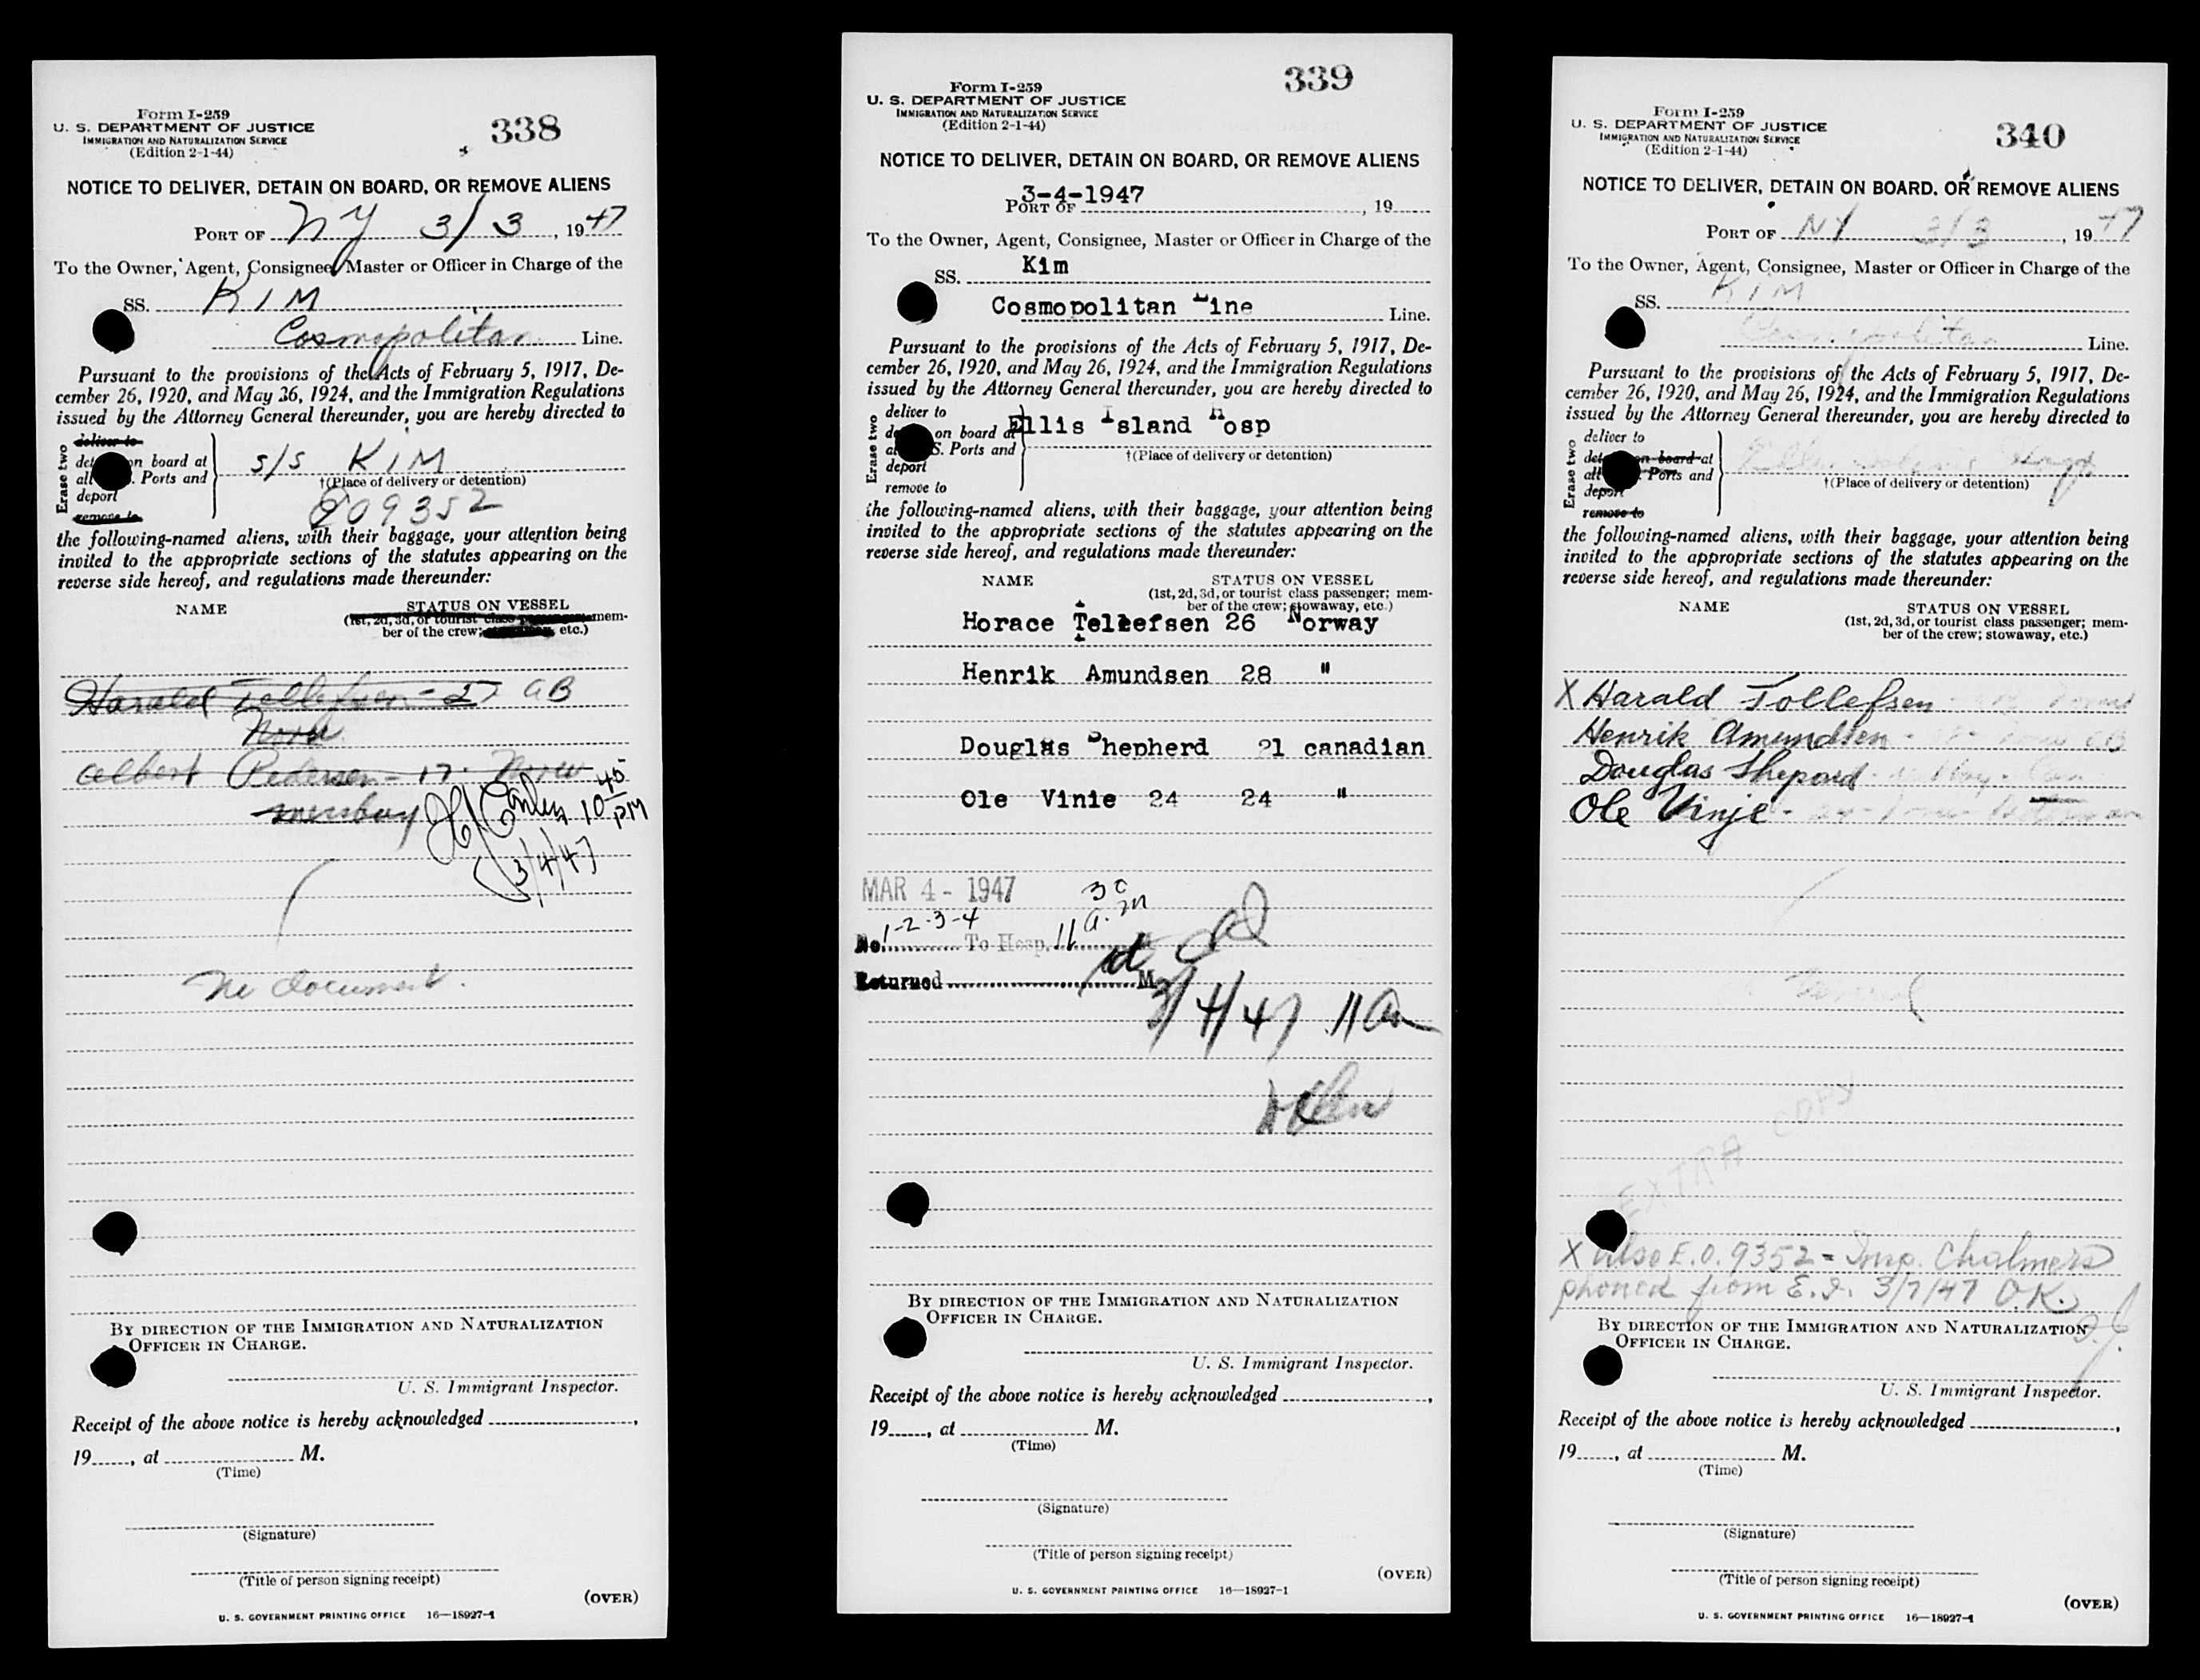 Form I-259
U. S. DEPARTMENT OF JUSTICE
IMMIGRATION AND NATURALIZATION SERVICE
(Edition 2-1-44)
338
NOTICE TO DELIVER, DETAIN ON BOARD, OR REMOVE ALIENS
PORT OF NY 3/3, 1947
To the Owner, Agent, Consignee, Master or Officer in Charge of the
SS. KIM
Cosmopolitan Line.
Pursuant to the provisions of the Acts of February 5, 1917, De-
cember 26, 1920, and May 26, 1924, and the Immigration Regulations
issued by the Attorney General thereunder, you are hereby directed to
Erase two
deliver to
on board at
Ports and
deport
remove to
S/S KIM
†(Place of delivery or detention)
the following-named aliens, with their baggage, your attention being
invited to the appropriate sections of the statutes appearing on the
reverse side hereof, and regulations made thereunder:
NAME STATUS ON VESSEL
(1st, 2d, 3d, or tourist class passenger; mem-
ber of the crew; etc.)
Harald Tollefsen - 27 AB
Norw
Albert Pedersen - 17 - Norw
messboy
10 45 PM
3/4/47
No document.
BY DIRECTION OF THE IMMIGRATION AND NATURALIZATION
OFFICER IN CHARGE.
U. S. Immigrant Inspector.
Receipt of the above notice is hereby acknowledged,
19, at M.
(Time)
(Signature)
(Title of person signing receipt)
(OVER)
U. S. GOVERNMENT PRINTING OFFICE 16—18927-1
Form I-259
U. S. DEPARTMENT OF JUSTICE
IMMIGRATION AND NATURALIZATION SERVICE
(Edition 2-1-44)
339
NOTICE TO DELIVER, DETAIN ON BOARD, OR REMOVE ALIENS
3-4-1947
PORT OF, 19
To the Owner, Agent, Consignee, Master or Officer in Charge of the
SS. Kim
Cosmopolitan Line Line.
Pursuant to the provisions of the Acts of February 5, 1917, De-
cember 26, 1920, and May 26, 1924, and the Immigration Regulations
issued by the Attorney General thereunder, you are hereby directed to
Erase two
deliver to
on board at
S. Ports and
deport
remove to
Ellis Island Hosp
†(Place of delivery or detention)
the following-named aliens, with their baggage, your attention being
invited to the appropriate sections of the statutes appearing on the
reverse side hereof, and regulations made thereunder:
NAME STATUS ON VESSEL
(1st, 2d, 3d, or tourist class passenger; mem-
ber of the crew; stowaway, etc.)
Horace Tellefsen 26 Norway
Henrik Amundsen 28 "
Douglas Shepherd 21 canadian
Ole Vinie 24 24 "
MAR 4 - 1947
No. 1-2-3-4 To Hosp. 11 30 a.m
Returned M.
3/4/47 11 am
BY DIRECTION OF THE IMMIGRATION AND NATURALIZATION
OFFICER IN CHARGE.
U. S. Immigrant Inspector.
Receipt of the above notice is hereby acknowledged,
19, at M.
(Time)
(Signature)
(Title of person signing receipt)
(OVER)
U. S. GOVERNMENT PRINTING OFFICE 16—18927-1
Form I-259
U. S. DEPARTMENT OF JUSTICE
IMMIGRATION AND NATURALIZATION SERVICE
(Edition 2-1-44)
340
NOTICE TO DELIVER, DETAIN ON BOARD, OR REMOVE ALIENS
PORT OF NY 3/3, 1947
To the Owner, Agent, Consignee, Master or Officer in Charge of the
SS. KIM
Cosmopolitan Line.
Pursuant to the provisions of the Acts of February 5, 1917, De-
cember 26, 1920, and May 26, 1924, and the Immigration Regulations
issued by the Attorney General thereunder, you are hereby directed to
Erase two
deliver to
on board at
Ports and
deport
remove to
†(Place of delivery or detention)
the following-named aliens, with their baggage, your attention being
invited to the appropriate sections of the statutes appearing on the
reverse side hereof, and regulations made thereunder:
NAME STATUS ON VESSEL
(1st, 2d, 3d, or tourist class passenger; mem-
ber of the crew; stowaway, etc.)
X Harald Tollefsen
Henrik Amundsen
Douglas Shepard
Ole Vinje
EXTRA COPY
X Also E.O. 9352 = Insp. Chalmers
phoned from E.I. 3/7/47 O.K.
BY DIRECTION OF THE IMMIGRATION AND NATURALIZATION
OFFICER IN CHARGE.
U. S. Immigrant Inspector.
Receipt of the above notice is hereby acknowledged,
19, at M.
(Time)
(Signature)
(Title of person signing receipt)
(OVER)
U. S. GOVERNMENT PRINTING OFFICE 16—18927-1